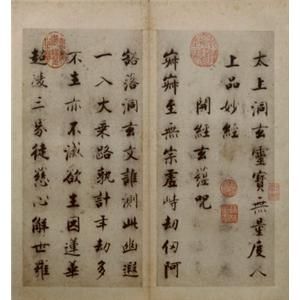 太上洞玄靈寶無量度人
上品妙經
開經玄蘊咒
寂寂至無宗虛峙劫仞阿
豁落洞玄文誰測此幽遐
一入大乘路孰計年劫多
不生亦不滅欲生因蓮華
超凌三界徒慈心解世羅